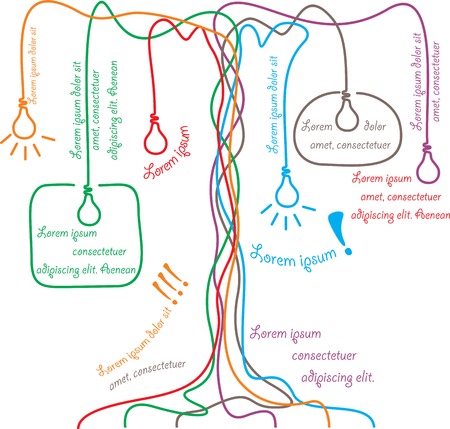 Lorem ipsum dolor sit
Lorem ipsum dolor sit
amet, consectetuer
adipiscing elit. Aenean
Lorem ipsum
Lorem ipsum dolor sit
amet, consectetuer
Lorem ipsum dolor sit
amet, consectetuer
Lorem dolor
amet, consectetuer
Lorem ipsum
amet, consectetuer
adipiscing elit. Aenean
Lorem ipsum
consectetuer
adipiscing elit. Aenean
Lorem ipsum !
Lorem ipsum dolor sit !!!
amet, consectetuer
Lorem ipsum
consectetuer
adipiscing elit.